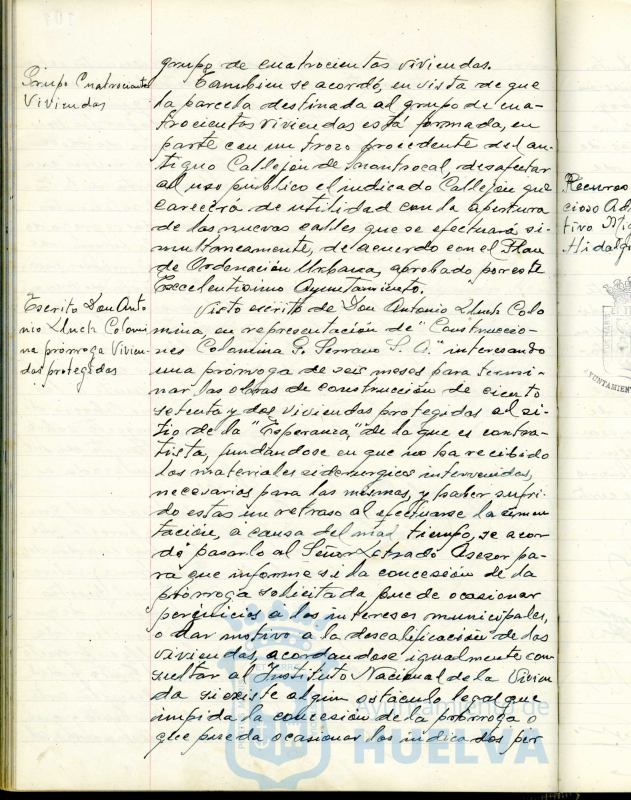 grupo de cuatrocientas viviendas.
Grupo Cuatrocientas
Viviendas
Tambien se acordó, en vista de que
la parcela destinada al grupo de cua-
trocientas viviendas está formada, en
parte con un trozo procedente del an-
tiguo Callejón de Montrocal, desafectar
al uso publico el indicado Callejón que
carecerá de utilidad con la apertura
de las nuevas calles que se efectuará si-
multaneamente, de acuerdo con el Plan
de Ordenación Urbana, aprobado por este
Excelentisimo Ayuntamiento.
Escrito Don Anto-
nio Lluch Colomi-
na prórroga Vivien-
das protegidas
Visto escrito de Don Antonio Lluch Colo
mina, en representación de "Construccio-
nes Colomina G. Serrano S. A." interesando
una prórroga de seis meses para termi-
nar las obras de construcción de ciento
setenta y dos viviendas protegidas al si-
tio de la "Esperanza," de la que es contra-
tista, fundandose en que no ha recibido
los materiales siderurgicos intervenidos,
necesarios para las mismas, y haber sufri-
do estas un retraso al efectuarse la cimen-
tación, a causa del mal tiempo, se acor
dó pasarlo al Señor Letrado Asesor pa-
ra que informe si la concesión de la
prórroga solicitada puede ocasionar
perjuicios a los intereses municipales,
o dar motivo a la descalificación de las
viviendas, acordandose igualmente con
sultar al Instituto Nacional de la Vivien
da si existe algun ostaculo legal que
impida la concesión de la prórroga o
que pueda ocasionar los indicados per
Recurso
cioso Ad
tivo
Hidalg
AYUNTAMIEN
Ayuntamiento de
HUELVA